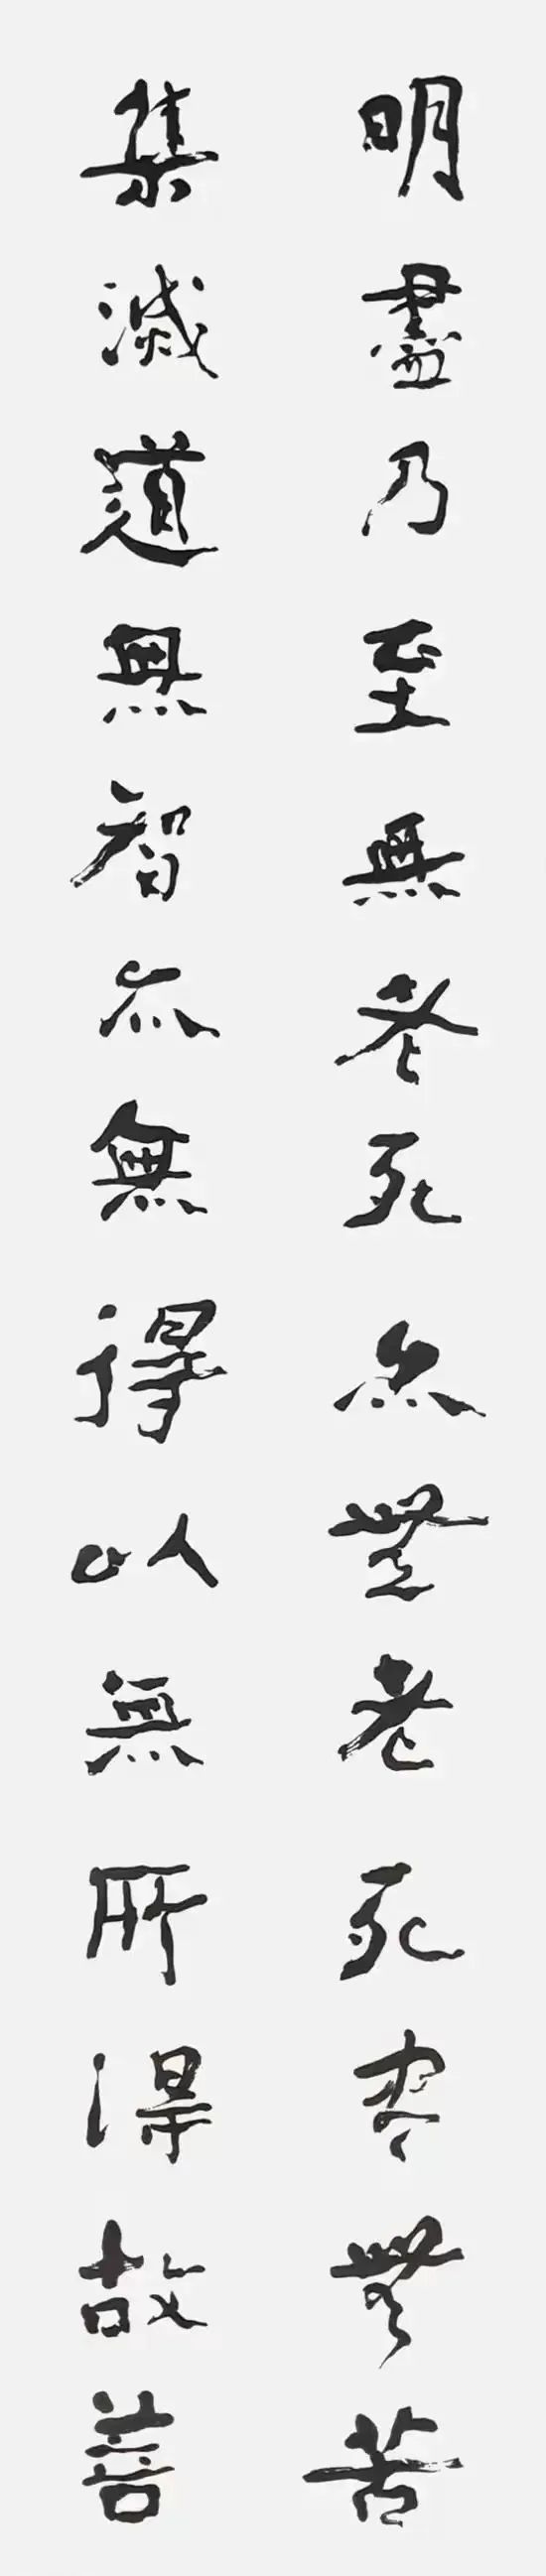 明盡乃至無老死亦無老死尽無苦
集滅道無智亦無得以無所得故菩